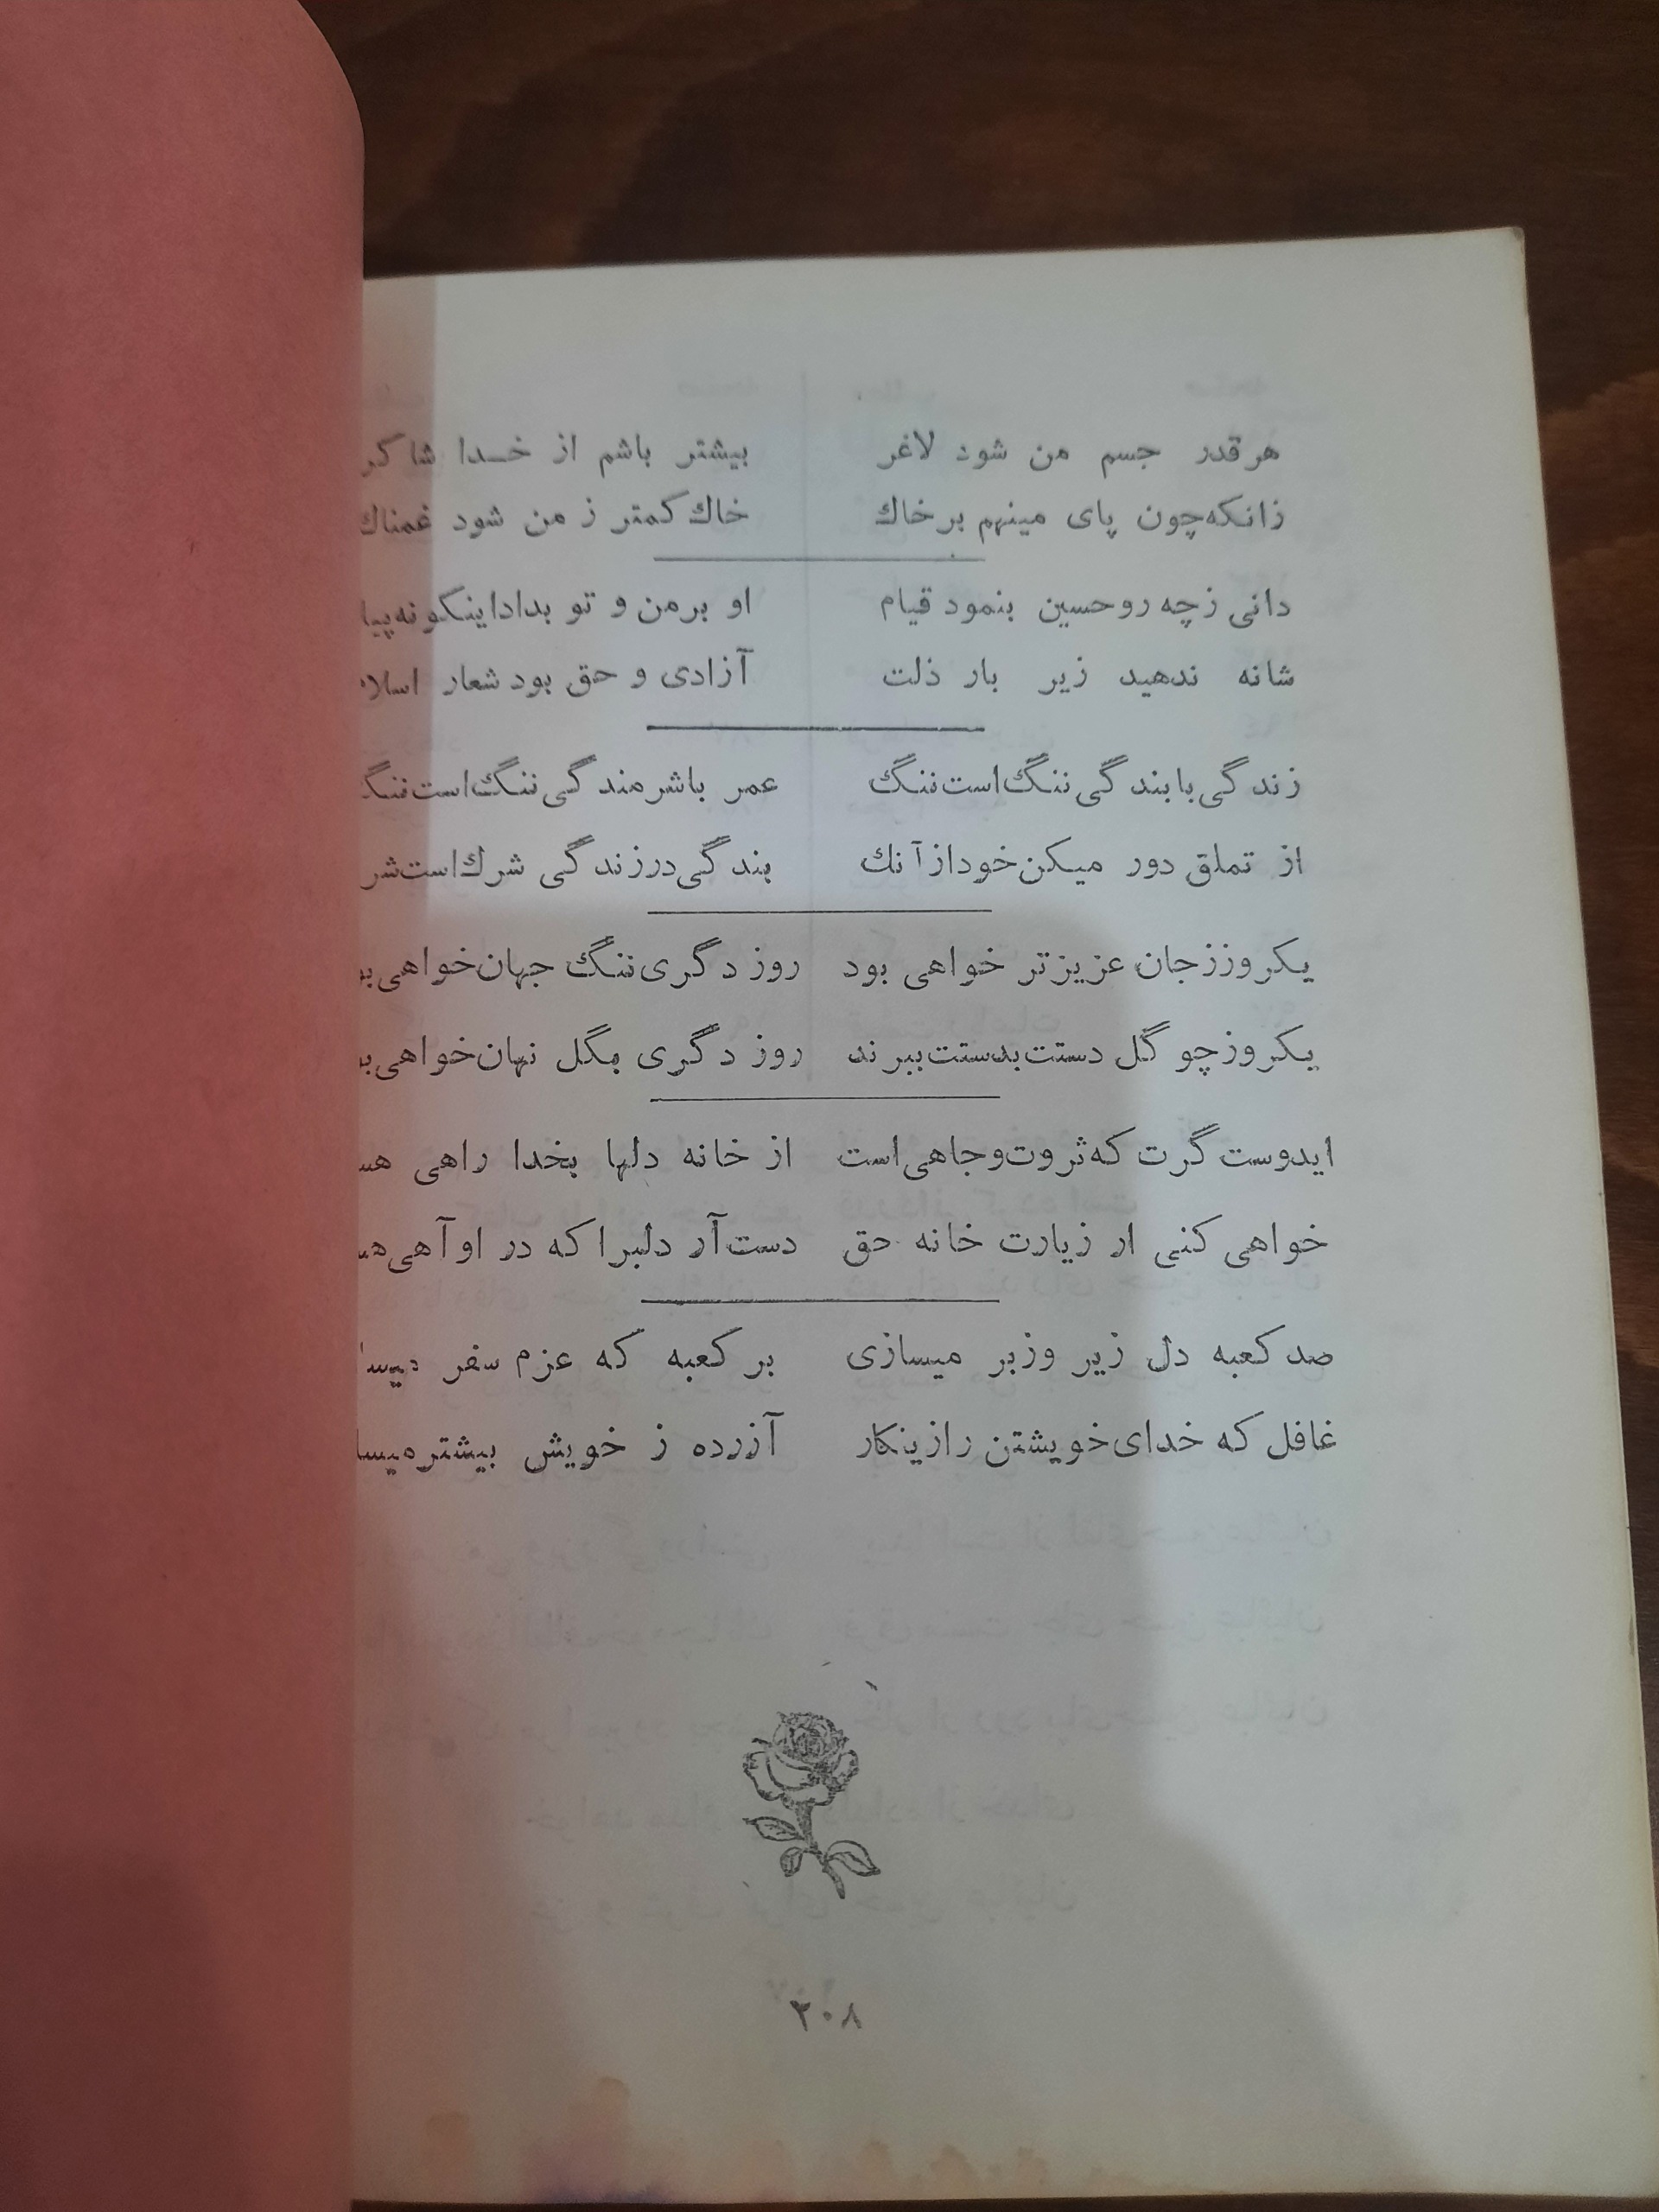 هر قدر جسم من شود لاغر بیشتر باشم از خدا شاکر
زانکه چون پای مینهم بر خاك خاك کمتر ز من شود غمناك
دانی ز چه رو حسین بنمود قیام او بر من و تو بداد اینگونه
شانه ندهید زیر بار ذلت آزادی و حق بود شعار
زندگی با بندگی ننگ است ننگ عمر با شرمندگی ننگ است
از تملق دور میکن خود از آنك بندگی در زندگی شرك است
یکروز ز جان عزیزتر خواهی بود روز دگری ننگ جهان خواهی
یکروز چو گل دستت بدستت ببرند روز دگری بگل نهان خواهی
ایدوست گرت که ثروت و جاهی است از خانه دلها بخدا راهی
خواهی کنی ار زیارت خانه حق دست آر دلیرا که در او آهی
صد کعبه دل زیر و زبر میسازی بر کعبه که عزم سفر
غافل که خدای خویشتن را زینکار آزرده ز خویش بیشتر
۲۰۸